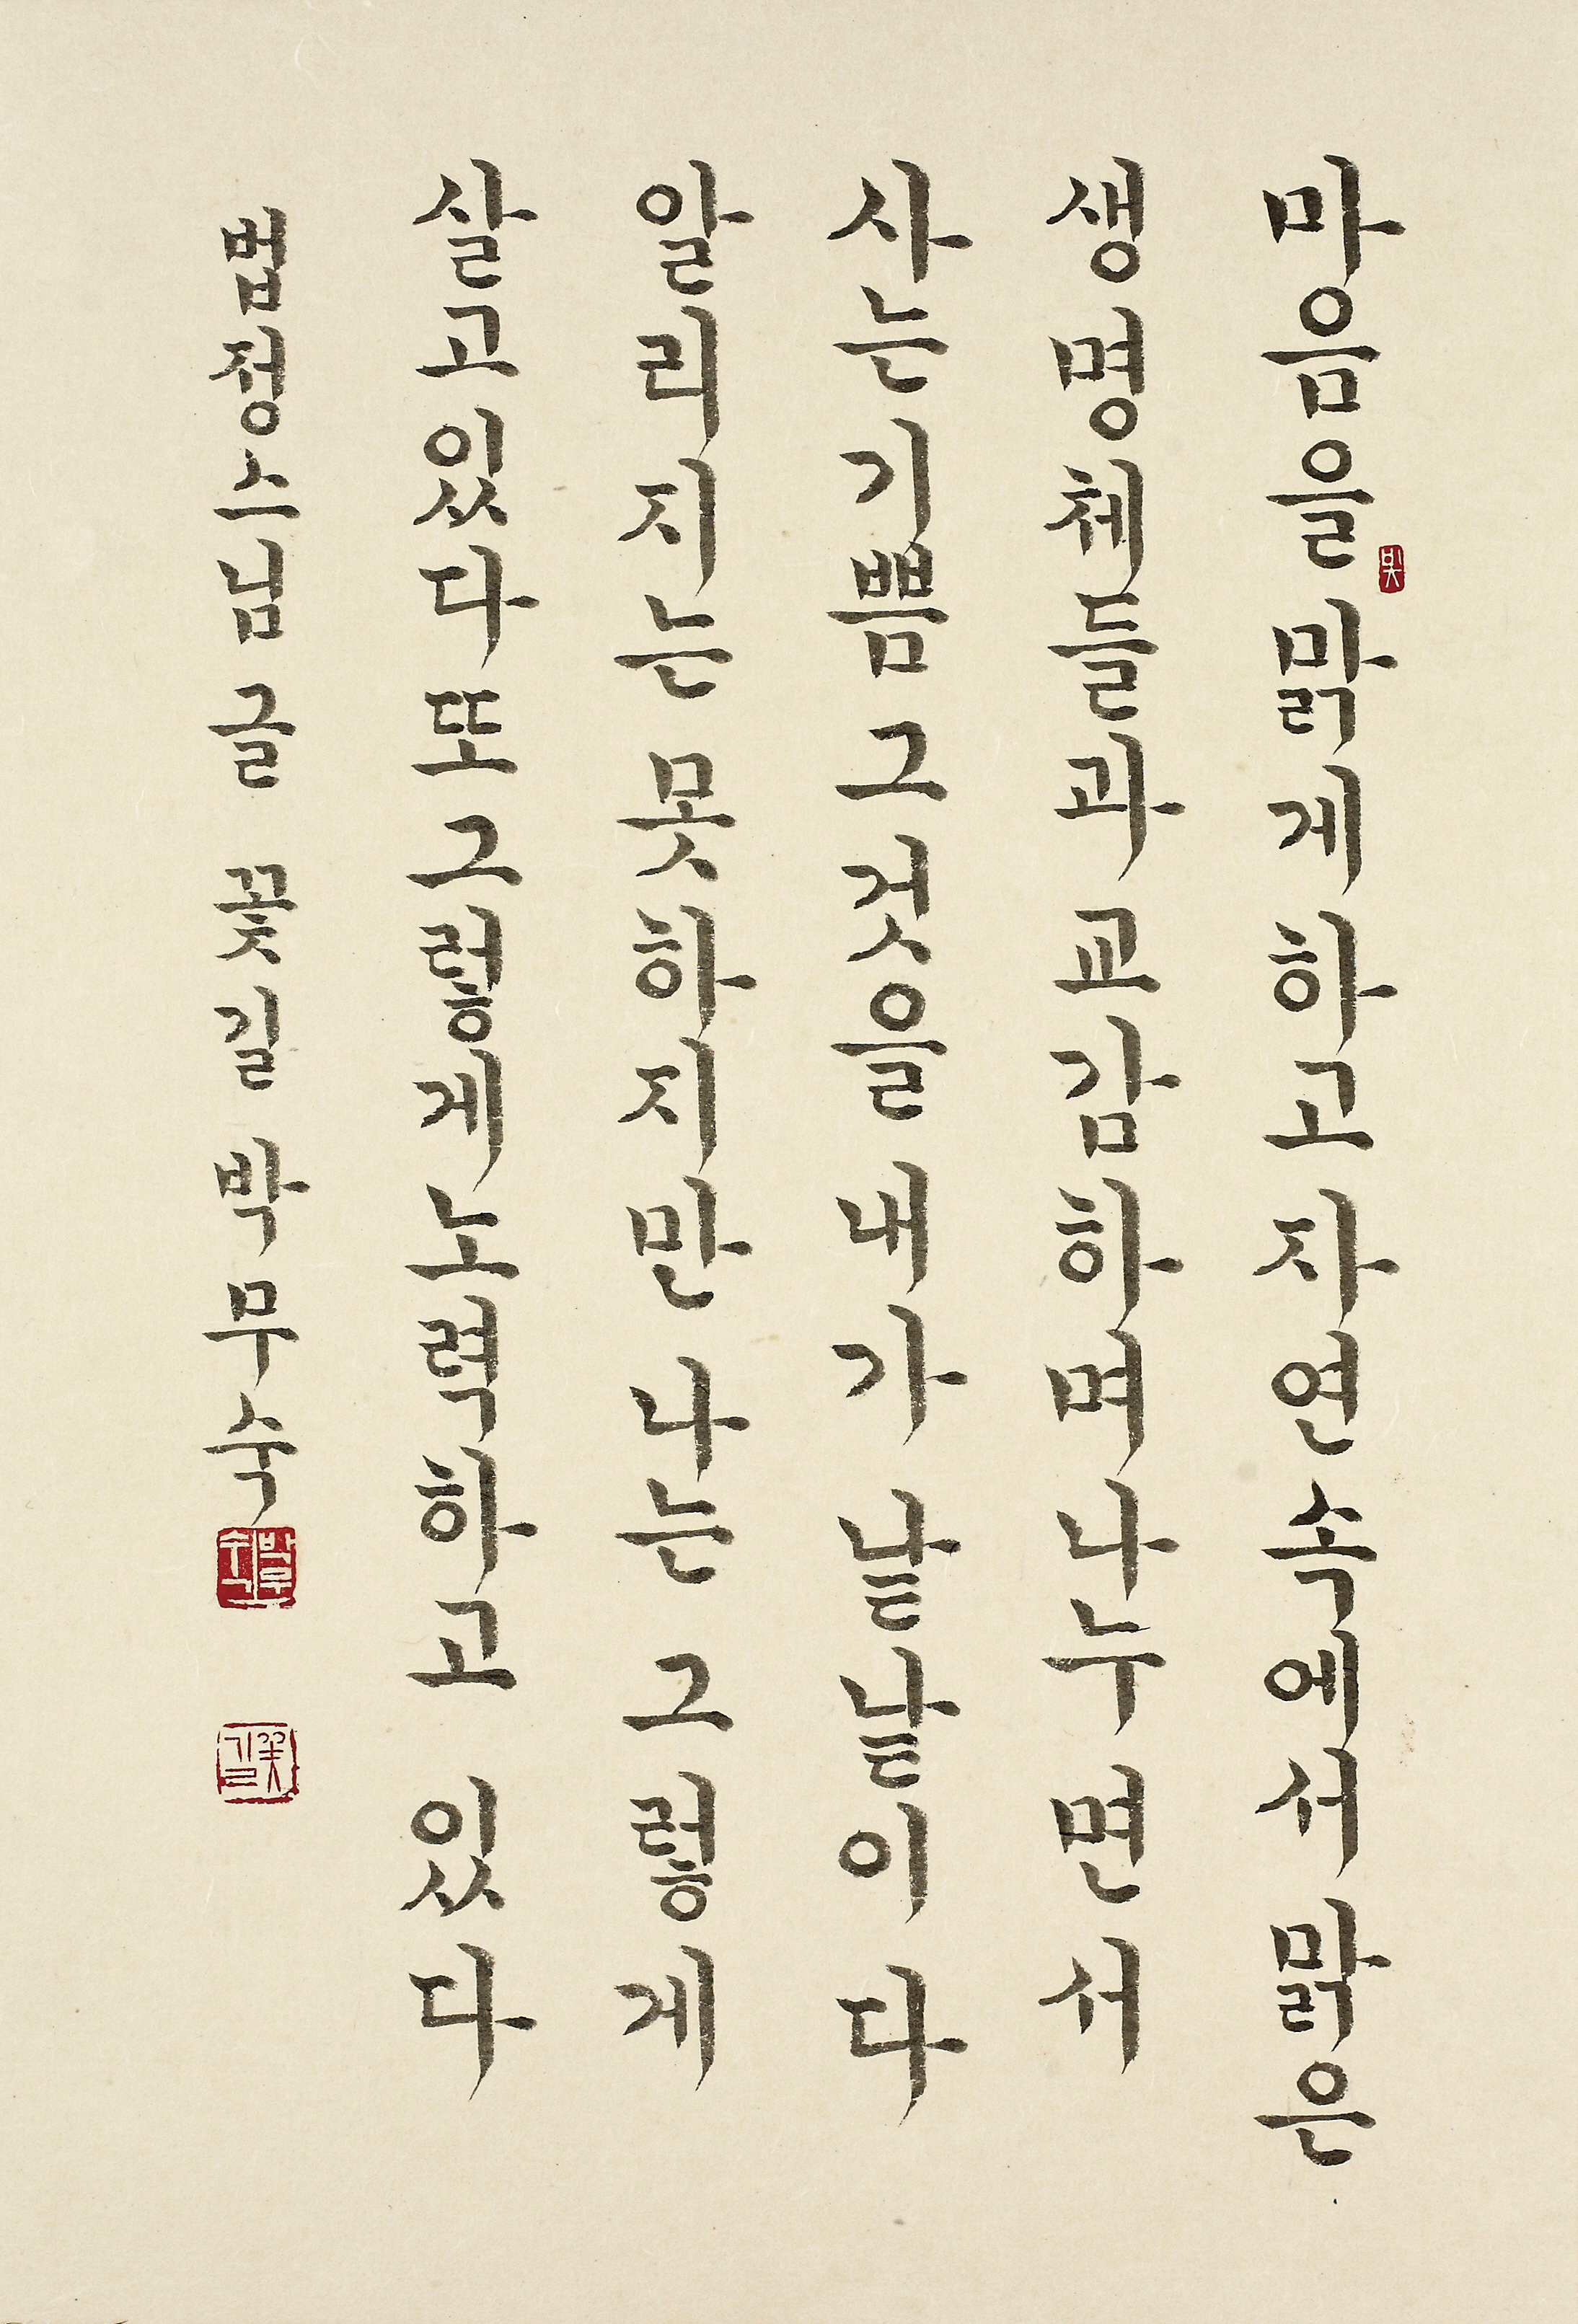 마음을 맑게 하고 자연 속에서 맑은
생명체들과 교감하며 나누면서
사는 기쁨 그것을 내가 낱낱이 다
알리지는 못하지만 나는 그렇게
살고 있다 또 그렇게 노력하고 있다
법정스님 글 꽃길 박무숙
박무숙
꽃길